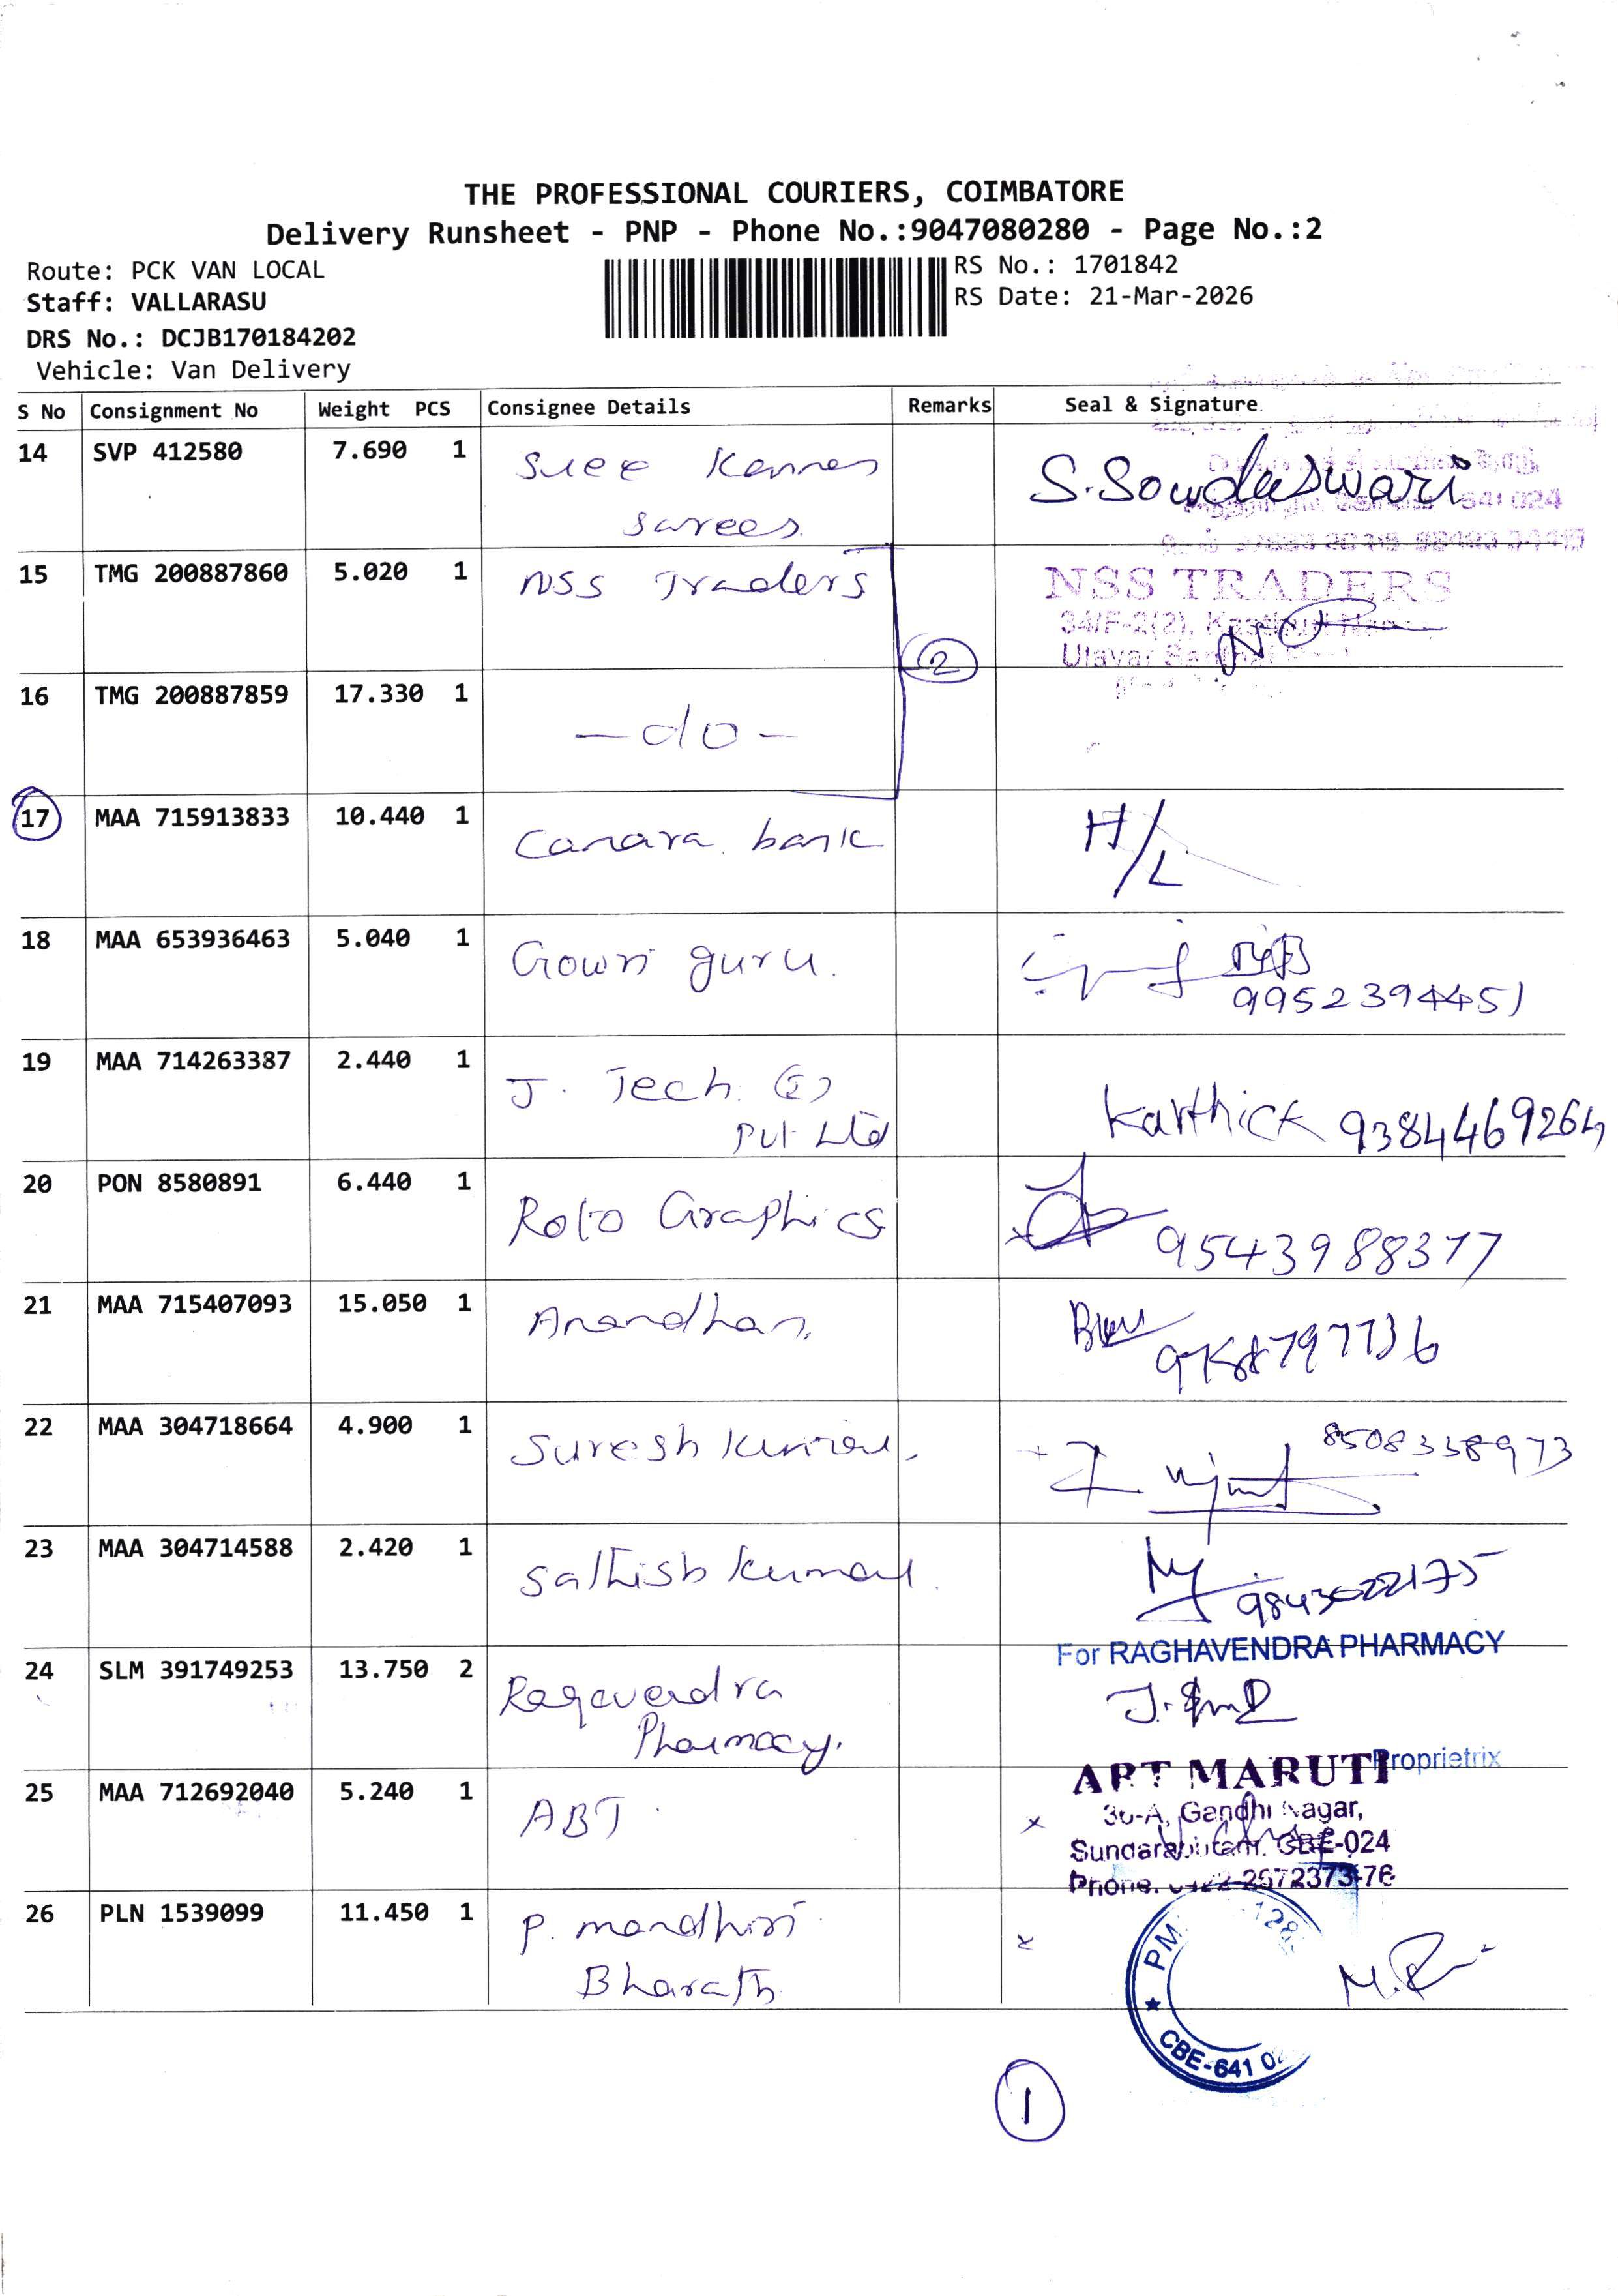 THE PROFESSIONAL COURIERS, COIMBATORE
Delivery Runsheet - PNP - Phone No.:9047080280 - Page No.:2
Route: PCK VAN LOCAL
RS No.: 1701842
Staff: VALLARASU
RS Date: 21-Mar-2026
DRS No.: DCJB170184202
Vehicle: Van Delivery
S No Consignment No Weight PCS Consignee Details Remarks Seal & Signature
14 SVP 412580 7.690 1 Sree Kannan
sarees
S. Sowdaswari
641 024
15 TMG 200887860 5.020 1 NSS Traders
NSS TRADERS
34/F-2(2),
Ulavar
2
16 TMG 200887859 17.330 1 -do-
17 MAA 715913833 10.440 1 Canara bank H/L
18 MAA 653936463 5.040 1 Gowri guru.
9952394451
19 MAA 714263387 2.440 1 J. Tech (I)
Pvt Ltd
Karthick 9384469264
20 PON 8580891 6.440 1 Roto Graphics
9543988377
21 MAA 715407093 15.050 1 Anandhan
22 MAA 304718664 4.900 1 Suresh kumar
8508338973
23 MAA 304714588 2.420 1 Sathish kumar
9843022175
For RAGHAVENDRA PHARMACY
24 SLM 391749253 13.750 2 Ragavendra
Pharmacy.
Proprietrix
25 MAA 712692040 5.240 1 ABT
MARUTI
36-A, Gandhi Nagar,
CBE-024
Phone.
26 PLN 1539099 11.450 1 P. mandhiri
Bharath
PM
CBE-641
1